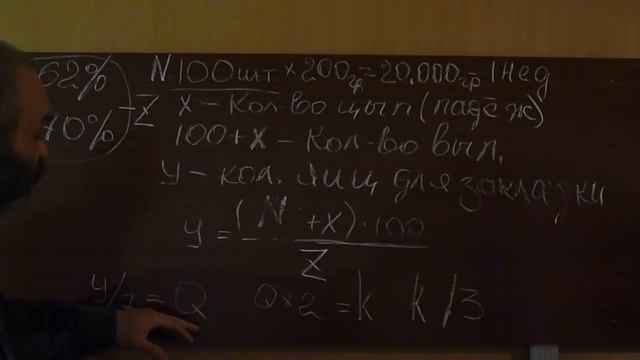 62% N 100шт × 200гр = 20.000гр 1нед
70% Z X – Кол-во цып (падёж)
100+X – Кол-во выл.
У – кол. яиц для закладки
У = (N +X)·100
Z
У/7 = Q Q×2 = K K /3